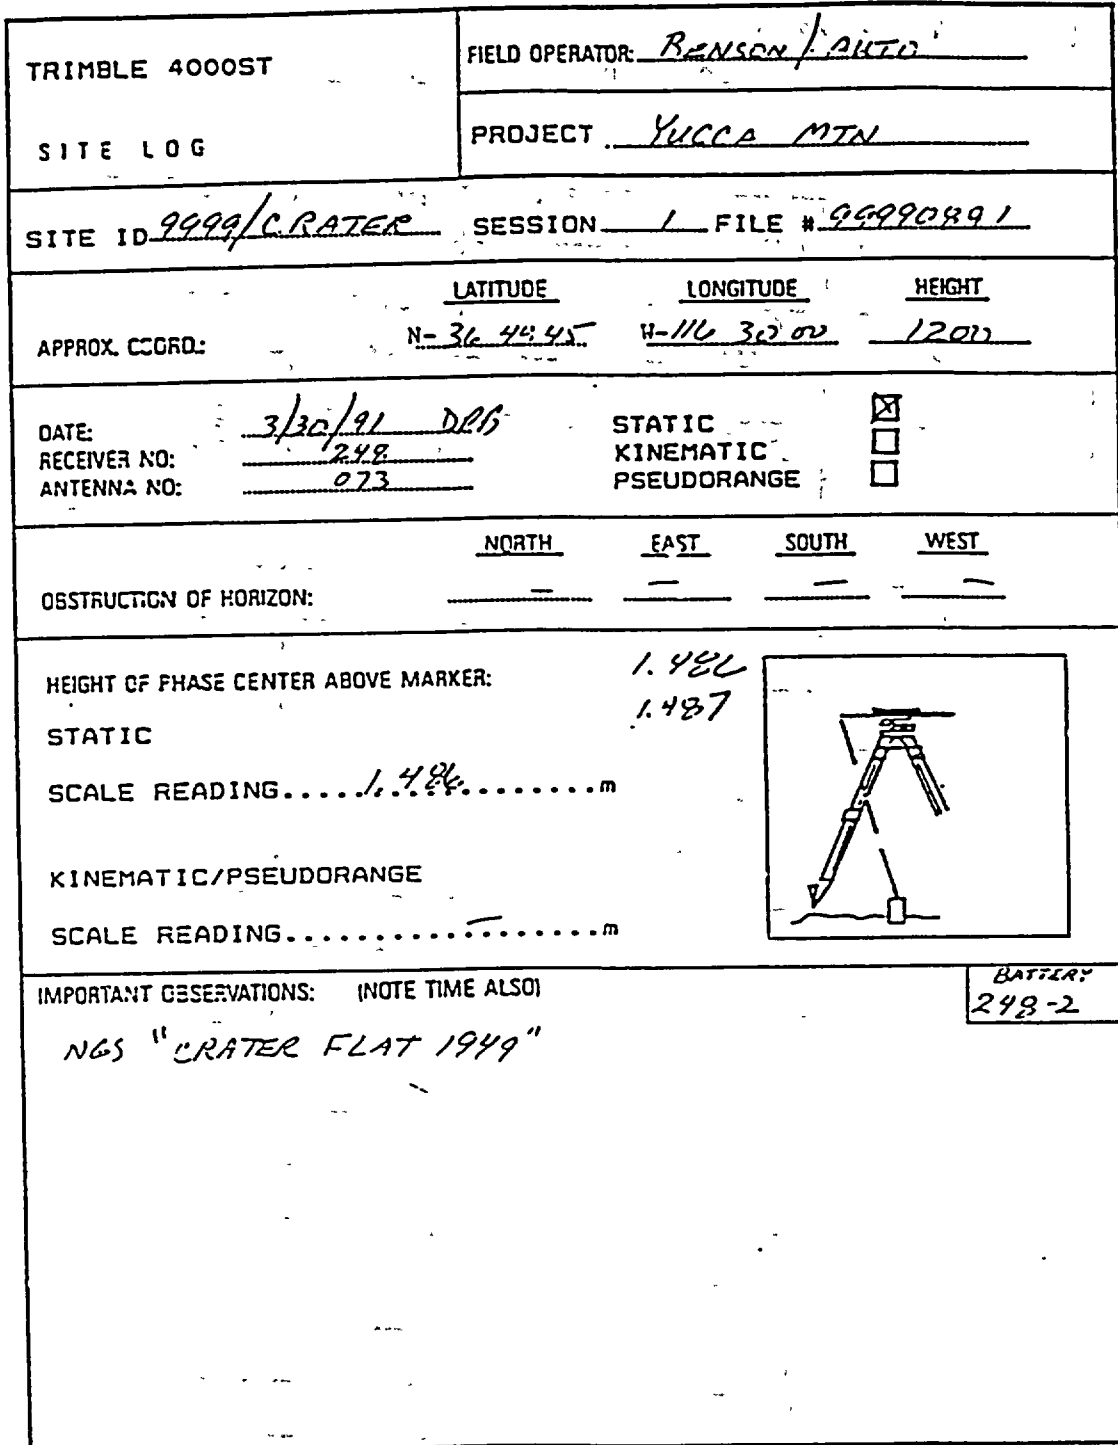 TRIMBLE 4000ST
SITE LOG
FIELD OPERATOR: BENSON / AUTO
PROJECT YUCCA MTN
SITE ID 9999/CRATER SESSION 1 FILE # 99990891
LATITUDE LONGITUDE HEIGHT
APPROX. COORD.: N- 36 44 45 W-116 30 00 1200
DATE: 3/30/91
RECEIVER NO: 248
ANTENNA NO: 073
STATIC
KINEMATIC
PSEUDORANGE
NORTH EAST SOUTH WEST
OBSTRUCTION OF HORIZON: — — — —
HEIGHT OF PHASE CENTER ABOVE MARKER: 1.486
1.487
STATIC
SCALE READING.....1.486.........m
KINEMATIC/PSEUDORANGE
SCALE READING..........—.......m
IMPORTANT OBSERVATIONS: (NOTE TIME ALSO)
BATTERY
248-2
NGS "CRATER FLAT 1949"